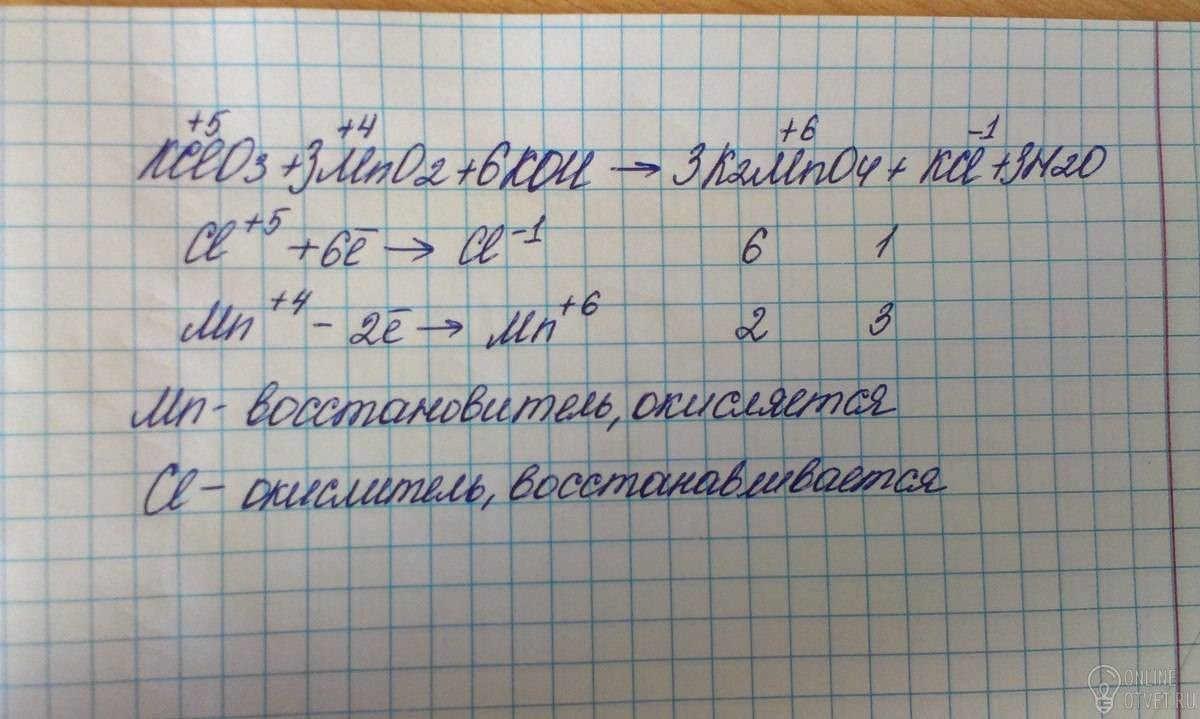 +5 +4 +6 -1
KClO3 + 3MnO2 + 6KOH → 3K2MnO4 + KCl + 3H2O
Cl+5 + 6ē → Cl-1 6 1
Mn+4 - 2ē → Mn+6 2 3
Mn - восстановитель, окисляется
Cl - окислитель, восстанавливается
ONLINE
OTVET.RU